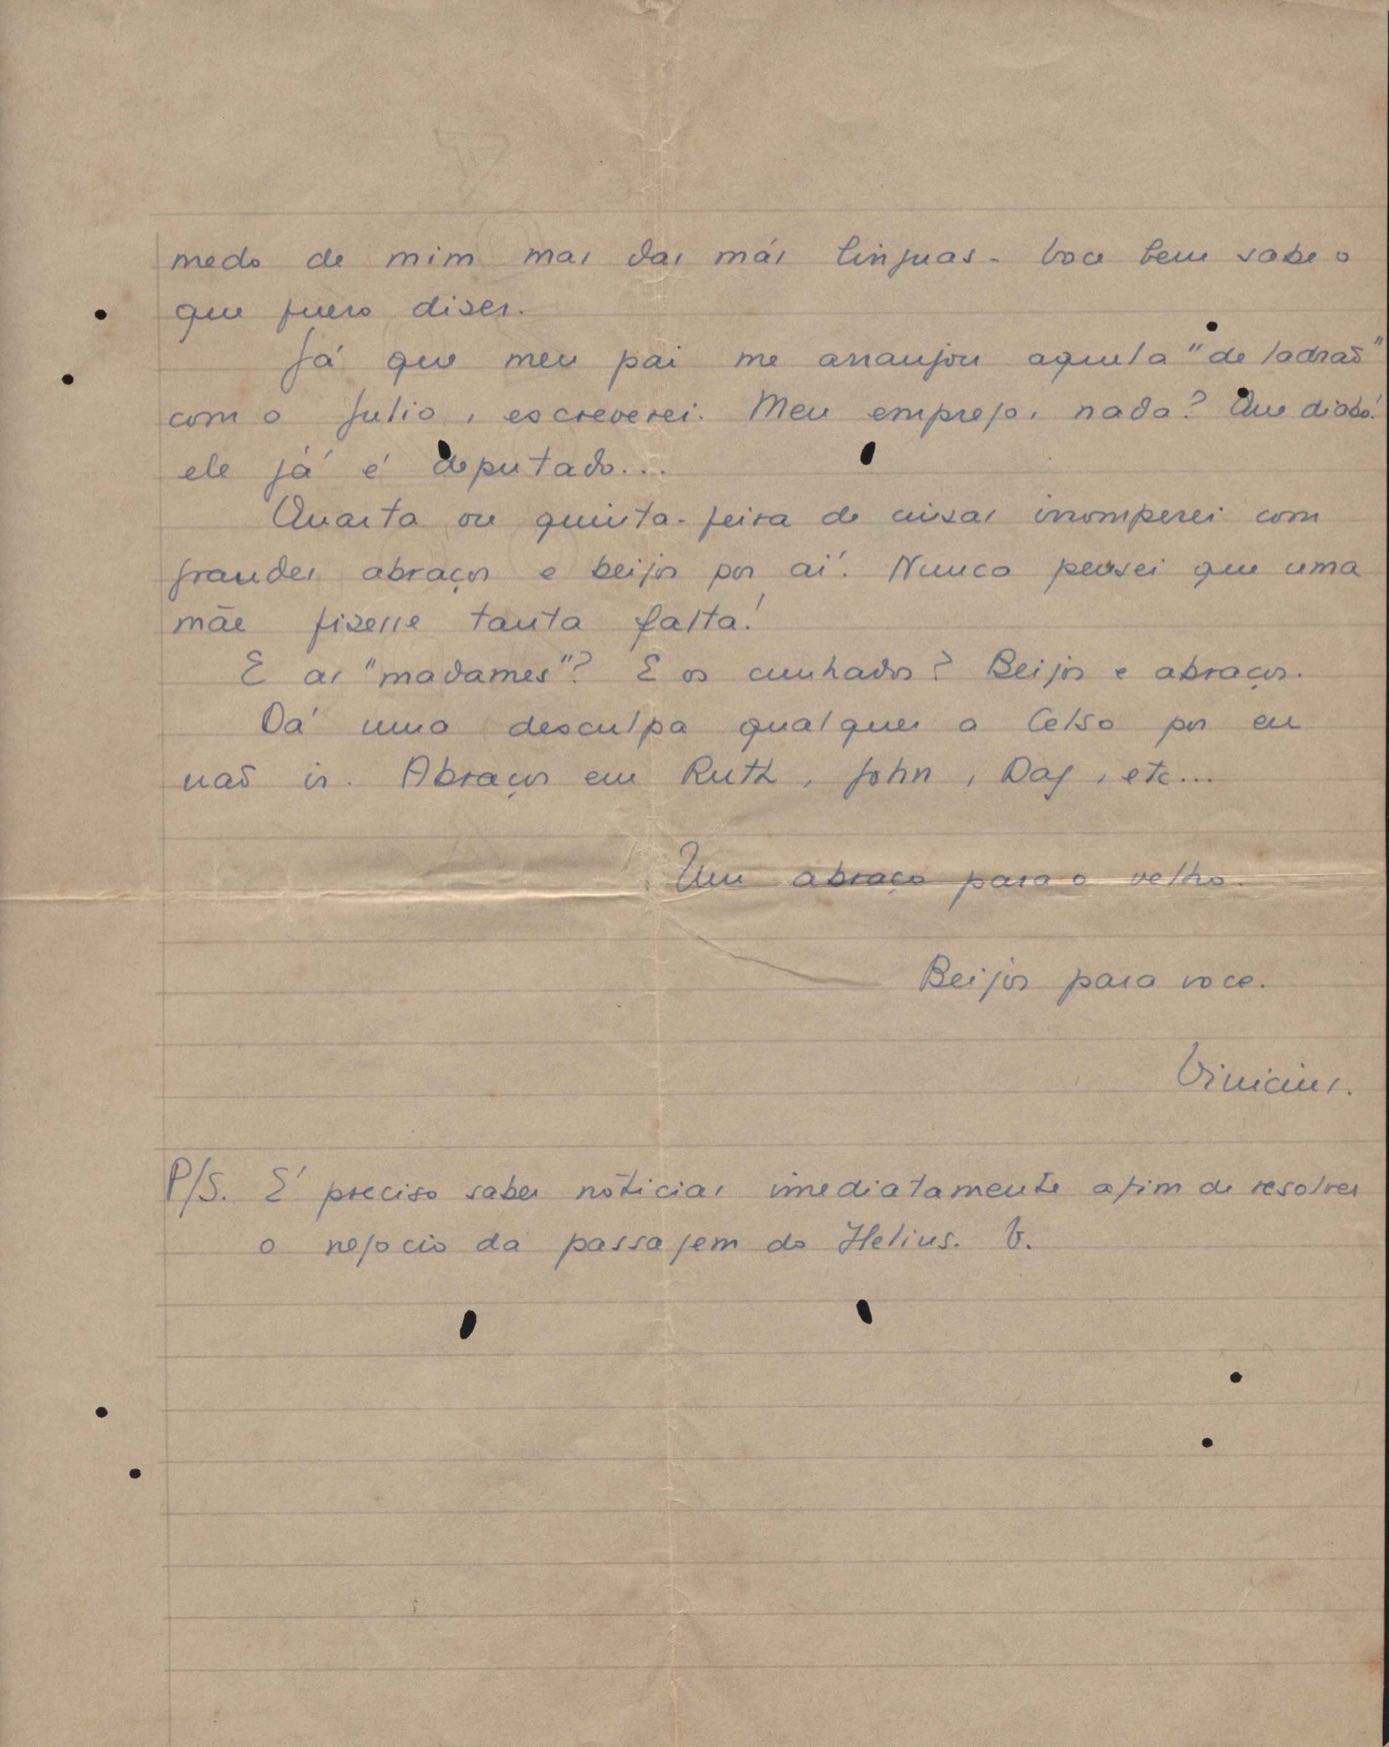 medo de mim mas das más linguas - Voce bem sabe o
que quero dizer.
Já que meu pai me arranjou aquela "de ladrão"
com o Julio, escreverei. Meu emprego, nada? Que diabo!
ele já é deputado...
Quarta ou quinta-feira de cinzas irromperei com
grandes abraços e beijos por aí. Nunca pensei que uma
mãe fizesse tanta falta!
E as "madames"? E os cunhados? Beijos e abraços.
Dá uma desculpa qualquer a Celso por eu
não ir. Abraços em Ruth, John, Dag, etc...
Um abraço para o velho.
Beijos para voce.
Vinicius.
P/S. É preciso saber noticias imediatamente afim de resolver
o negocio da passagem do Helius. V.